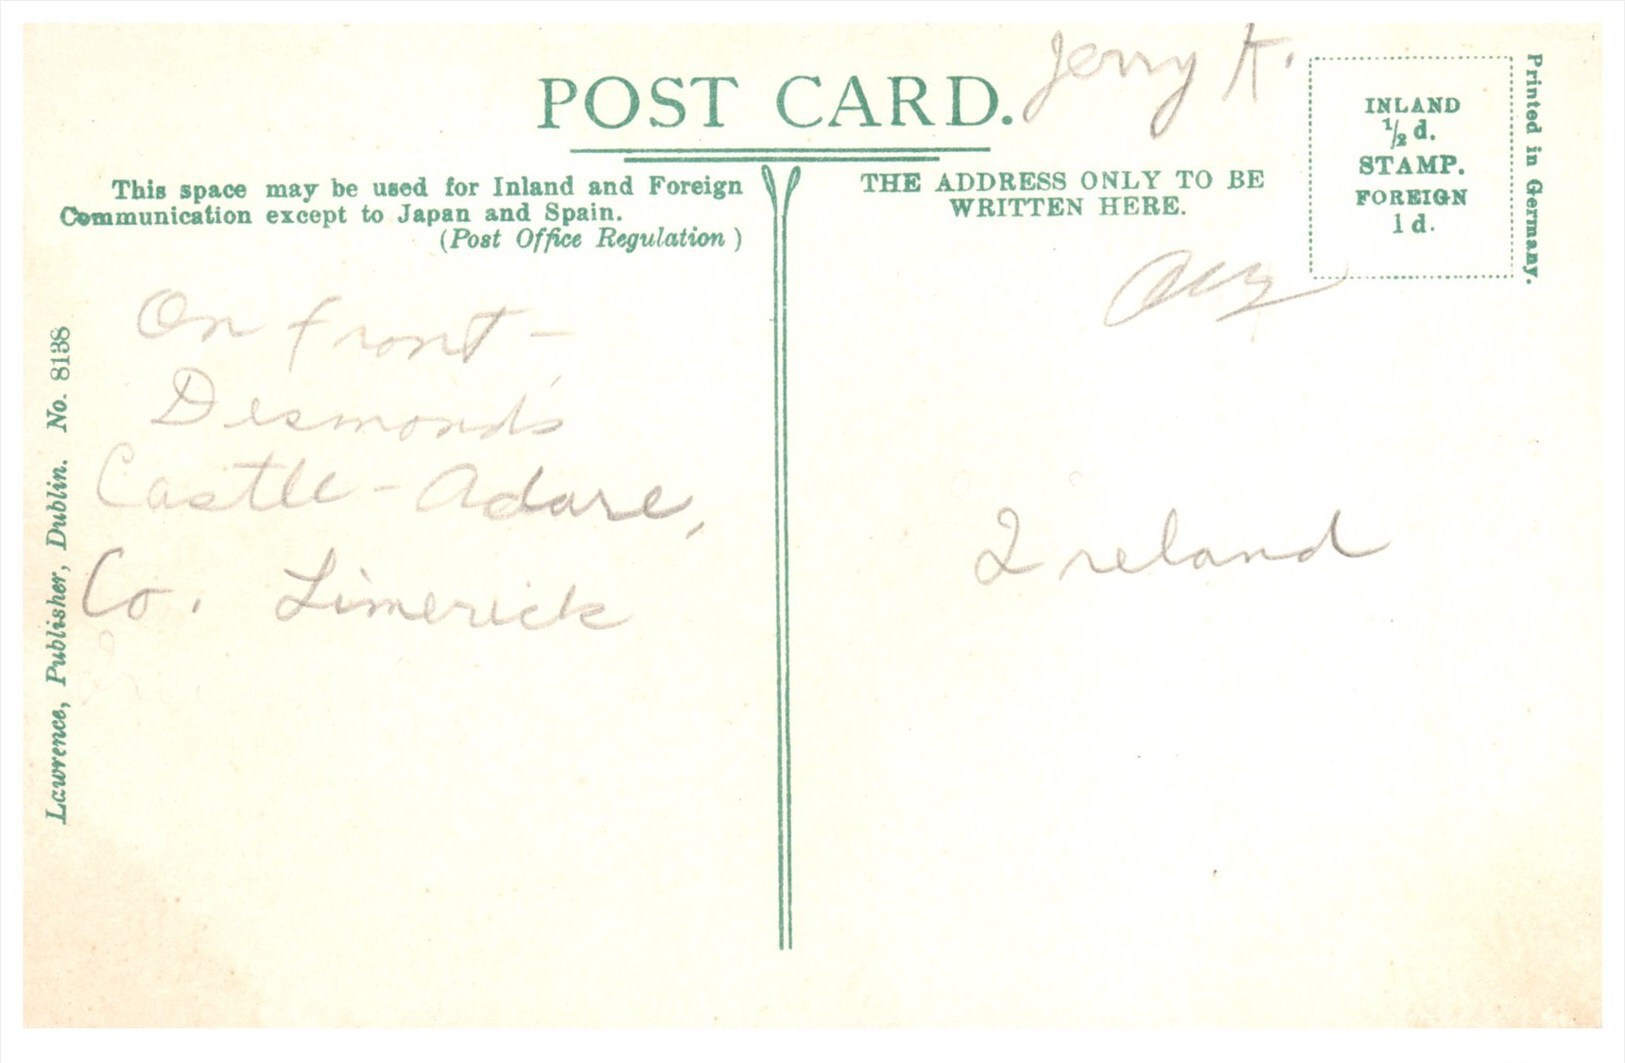 Jerry K.
POST CARD.
This space may be used for Inland and Foreign
Communication except to Japan and Spain.
(Post Office Regulation)
THE ADDRESS ONLY TO BE
WRITTEN HERE.
INLAND
½ d.
STAMP.
FOREIGN
1 d.
Printed in Germany.
On front -
Desmond's
Castle - Adare,
Co. Limerick
Ireland
Lawrence, Publisher, Dublin. No. 8138